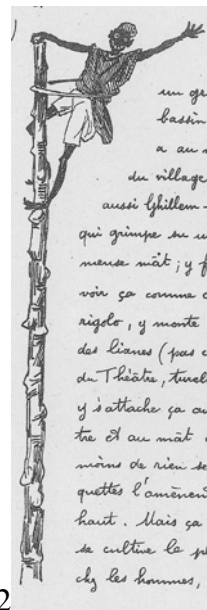 un gr
bassin
a au
du village
aussi Ghillem-
qui grimpe su u
mense mât; y f
voir ça comme c
rigolo, y monte
des lianes (pas c
du Théâtre, turel
y s'attache ça au
tre et au mât
moins de rien se
quettes l'amènen
haut. Mais ça
se cultive le p
chz les hommes,
2